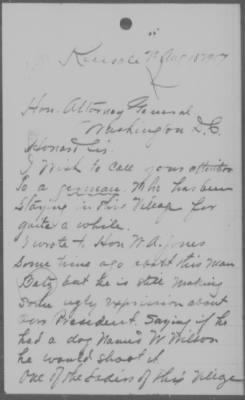 Kinsale Va Aug 18 1917
Hon. Attorney General
Washington D.C.
Honored Sir.
I Wish to Call your attention
to a german. Who has been
staying in this Village for
quite a while.
I wrote to Hon W.A. Jones
some time ago about this man
but he is still making
some ugly expression about
our President. Saying if he
had a dog Named W Wilson
he would shoot it
One of the Ladies of this Village